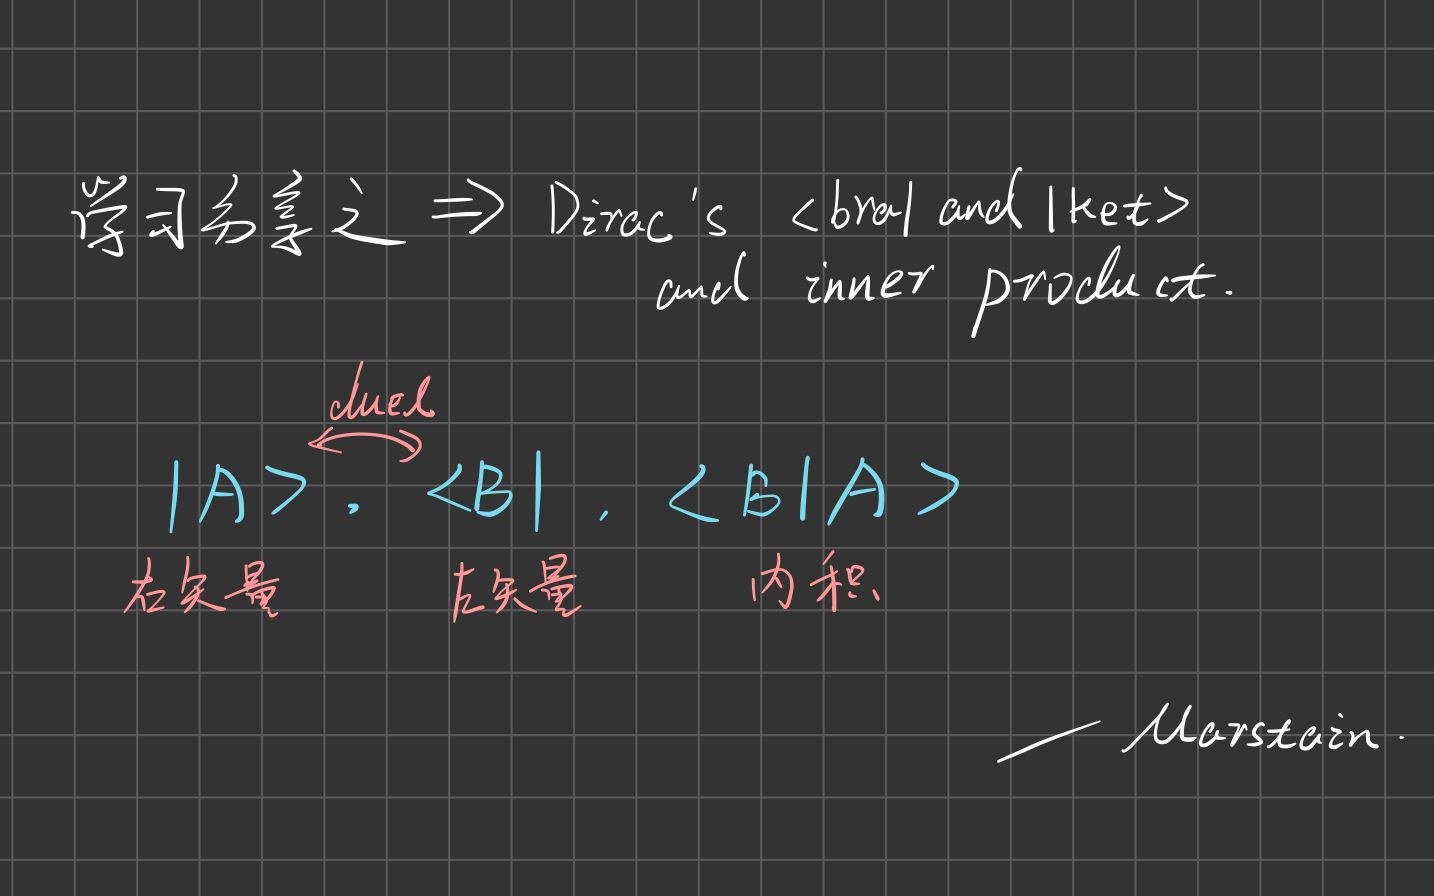 学习分享之 ⇒ Dirac's <bra| and |ket>
and inner product.
duel
|A> , <B| , <B|A>
右矢量 左矢量 内积
— Marstain.